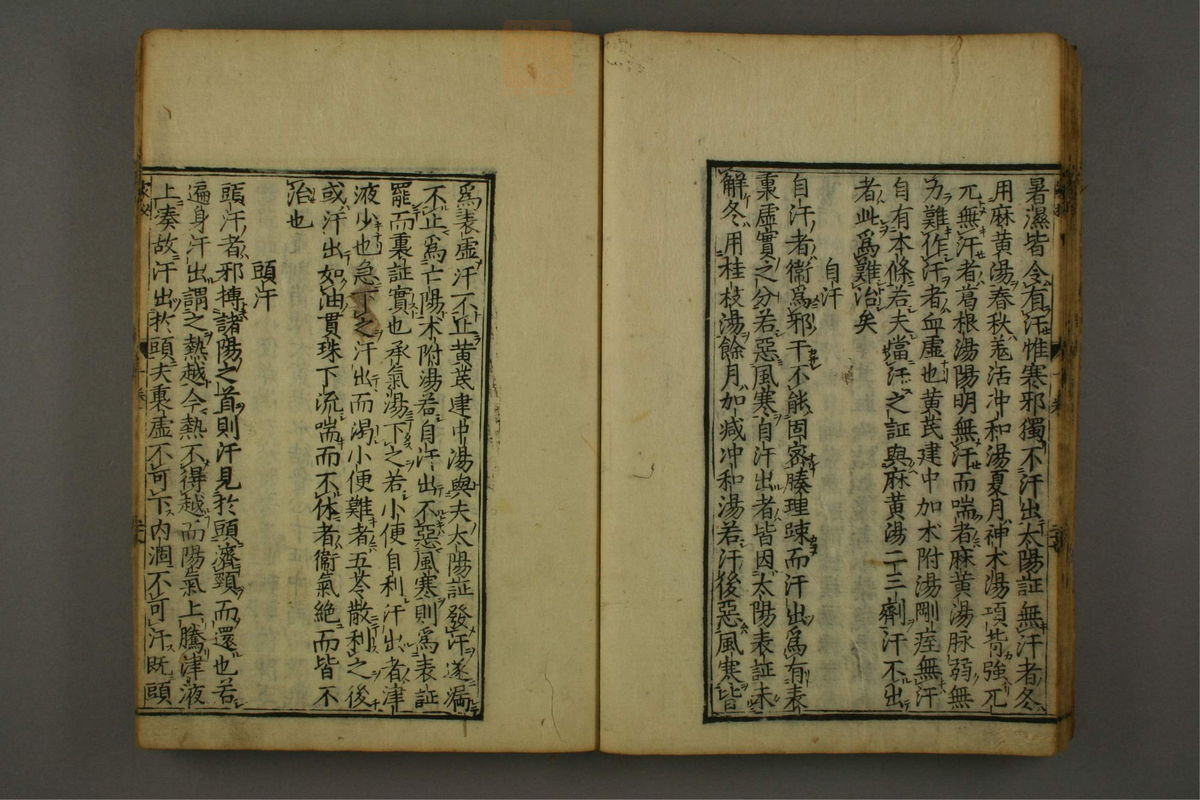 暑濕皆令有汗惟寒邪獨不汗出太陽証無汗者冬
用麻黄湯春秋羗活冲和湯夏月神术湯項背強兀
兀無汗者葛根湯陽明無汗而喘者麻黄湯脉弱無
力難作汗者血虚也黄芪建中加术附湯剛痓無汗
自有本條若夫當汗之証與麻黄湯二三劑汗不出
者此爲難治矣
自汗
自汗者衞爲邪干不能固密腠理踈而汗出爲有表
裏虚實之分若惡風寒自汗出者皆因太陽表証未
解冬用桂枝湯餘月加减冲和湯若汗後惡風寒皆
爲表虚汗不止黄芪建中湯與夫太陽証發汗遂漏
不止爲亡陽术附湯若自汗出不惡風寒則爲表証
罷而裏証實也承氣湯下之若小便自利汗出者津
液少也急下之汗出而渴小便難者五苓散利之後
或汗出如油貫珠下流喘而不休者衞氣絶而皆不
治也
頭汗
頭汗者邪搏諸陽之首則汗見於頭濟頸而還也若
遍身汗出謂之熱越今熱不得越而陽氣上騰津液
上凑故汗出於頭夫裏虚不可下内涸不可汗既頭